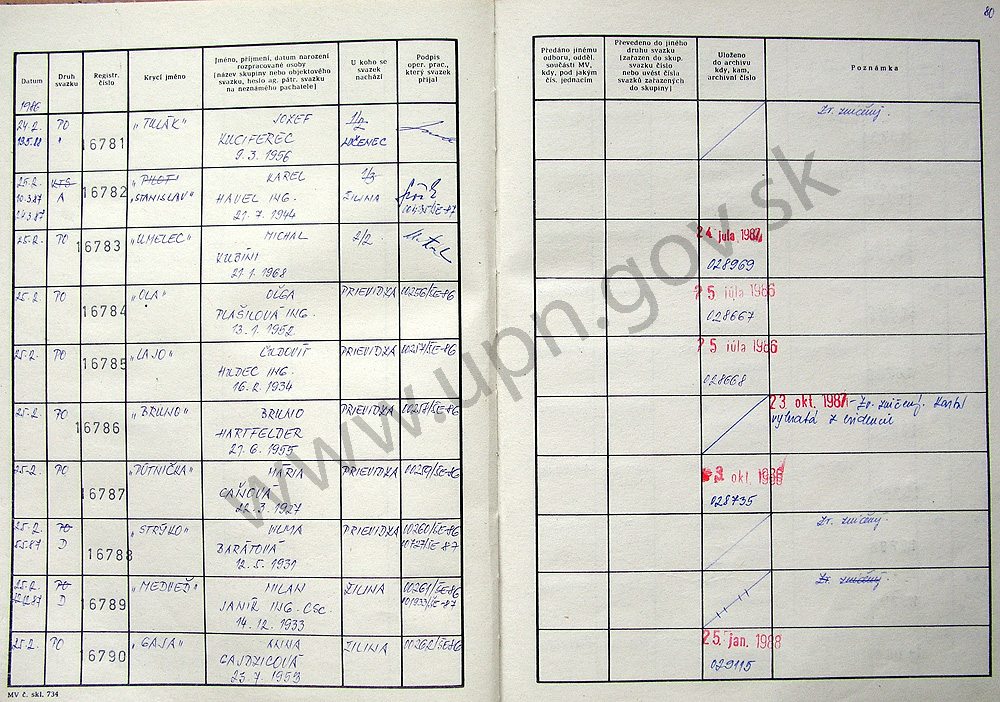 80
Datum
Druh svazku
Registr. číslo
Krycí jméno
Jméno, příjmení, datum narození
rozpracované osoby
[název skupiny nebo objektového
svazku, heslo ag. pátr. svazku
na neznámého pachatele]
U koho se
svazek
nachází
Podpis
oper. prac.,
který svazek
přijal
Předáno jinému
odboru, odděl.
součásti MV,
kdy, pod jakým
čís. jednacím
Převedeno do jiného
druhu svazku
[zařazen do skup.
svazku číslo
nebo uvést čísla
svazků zařazených
do skupiny]
Uloženo
do archivu
kdy, kam,
archivní číslo
Poznámka
1986
24.2. PO 16781 „TULÁK" JOZEF
KUCIFEREC LUČENEC
9.3.1956
Zv. zničený.
25.2. 16782 „PILOT" KAREL
10.3.87 A „STANISLAV" HAVEL ING. ŽILINA
21.7.1944
25.2. PO 16783 „UMELEC" MICHAL 2/2.
KUBÍNI
21.1.1968
24. júla 1987
028969
25.2. PO 16784 „OLA" OĽGA PRIEVIDZA 00256/ŠE-86
PLAŠILOVÁ ING.
13.1.1952
25 júla 1986
028667
25.2. PO 16785 „LAJO" ĽUDOVÍT PRIEVIDZA 00257/ŠE-86
HOLDEC ING.
16.2.1934
25 júla 1986
028668
25.2. PO 16786 „BRUNO" BRUNO PRIEVIDZA
HARTFELDER
27.6.1955
23 okt. 1987 - Zv. zničený. Karta
vybratá z evidencie
25.2. PO 16787 „PÚTNIČKA" MÁRIA PRIEVIDZA 00259/ŠE-86
GAŇOVÁ
22.3.1927
3 okt. 1986
028735
25.2. PO 16788 „STRÝKO" VILMA PRIEVIDZA 00260/ŠE-86
5.5.87 D BARÁTOVÁ 00727/ŠE-87
12.5.1931
Zv. zničený.
25.2. PO 16789 „MEDVEĎ" MILAN ŽILINA 00261/ŠE-86
D JANÍK ING. CSC. 001933/ŠE-87
14.12.1933
Zv. zničený.
25.2. PO 16790 „GAJA" ANNA ŽILINA 00262/ŠE-86
GAJDZICOVÁ
23.7.1953
25. jan. 1988
029115
MV č. skl. 734
www.upn.gov.sk